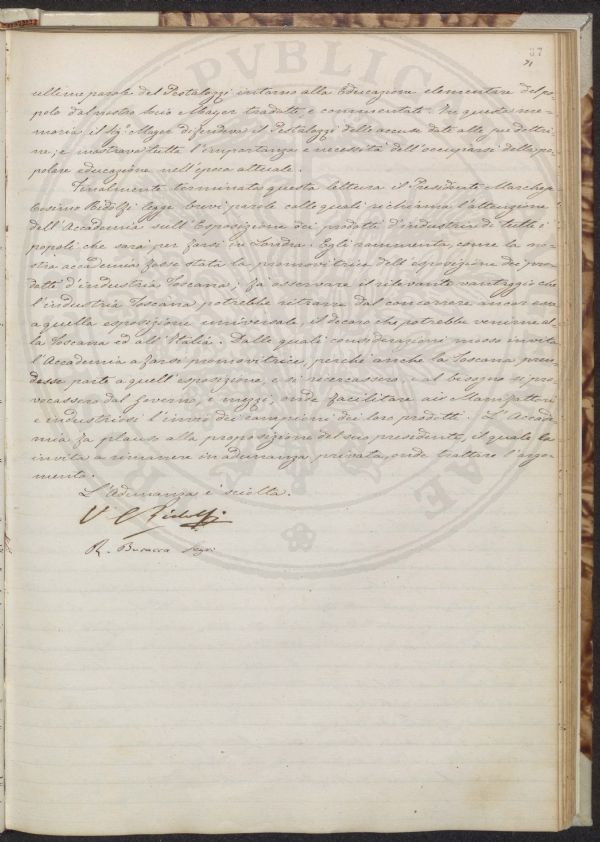 87
71
ultime parole del Pestalozzi intorno alla Educazione elementare del po-
polo dal nostro Socio Mayer tradotte e commentate. In queste me-
moria, il Sig.r Mayer difendeva il Pestalozzi dalle accuse date alle sue dottri-
ne; e mostrava tutta l'importanza e necessità dell'occuparsi della po-
polare educazione nell'epoca attuale.
Finalmente terminata questa lettura il Presidente March.e
Cosimo Ridolfi legge brevi parole colle quali richiama l'attenzione
dell'Accademia sull'Esposizione dei prodotti d'industria di tutti i
popoli che sarà per farsi in Londra. Egli rammenta, come la no-
stra accademia fosse stata la promovitrice dell'esposizione dei pro-
dotti d'industria Toscana; fa osservare il rilevante vantaggio che
l'industria Toscana potrebbe ritrarre dal concorrere ancor essa
a quella esposizione universale, il decoro che potrebbe venirne al-
la Toscana ed all'Italia. Dalle quali considerazioni mosso invita
l'Accademia a farsi promovitrice, perchè anche la Toscana pren-
desse parte a quell'esposizione, e si ricercassero, e al bisogno si pro-
vocassero dal governo, i mezzi, onde facilitare ai Manifattori
e industriosi l'invio dei campioni dei loro prodotti. L'Accade-
mia fa plauso alla proposizione del suo presidente, il quale la
invita a rimanere in adunanza privata, onde trattare l'argo-
mento.
L'Adunanza è sciolta.
V C Ridolfi
R. Busacca Segr.
PVBLICA